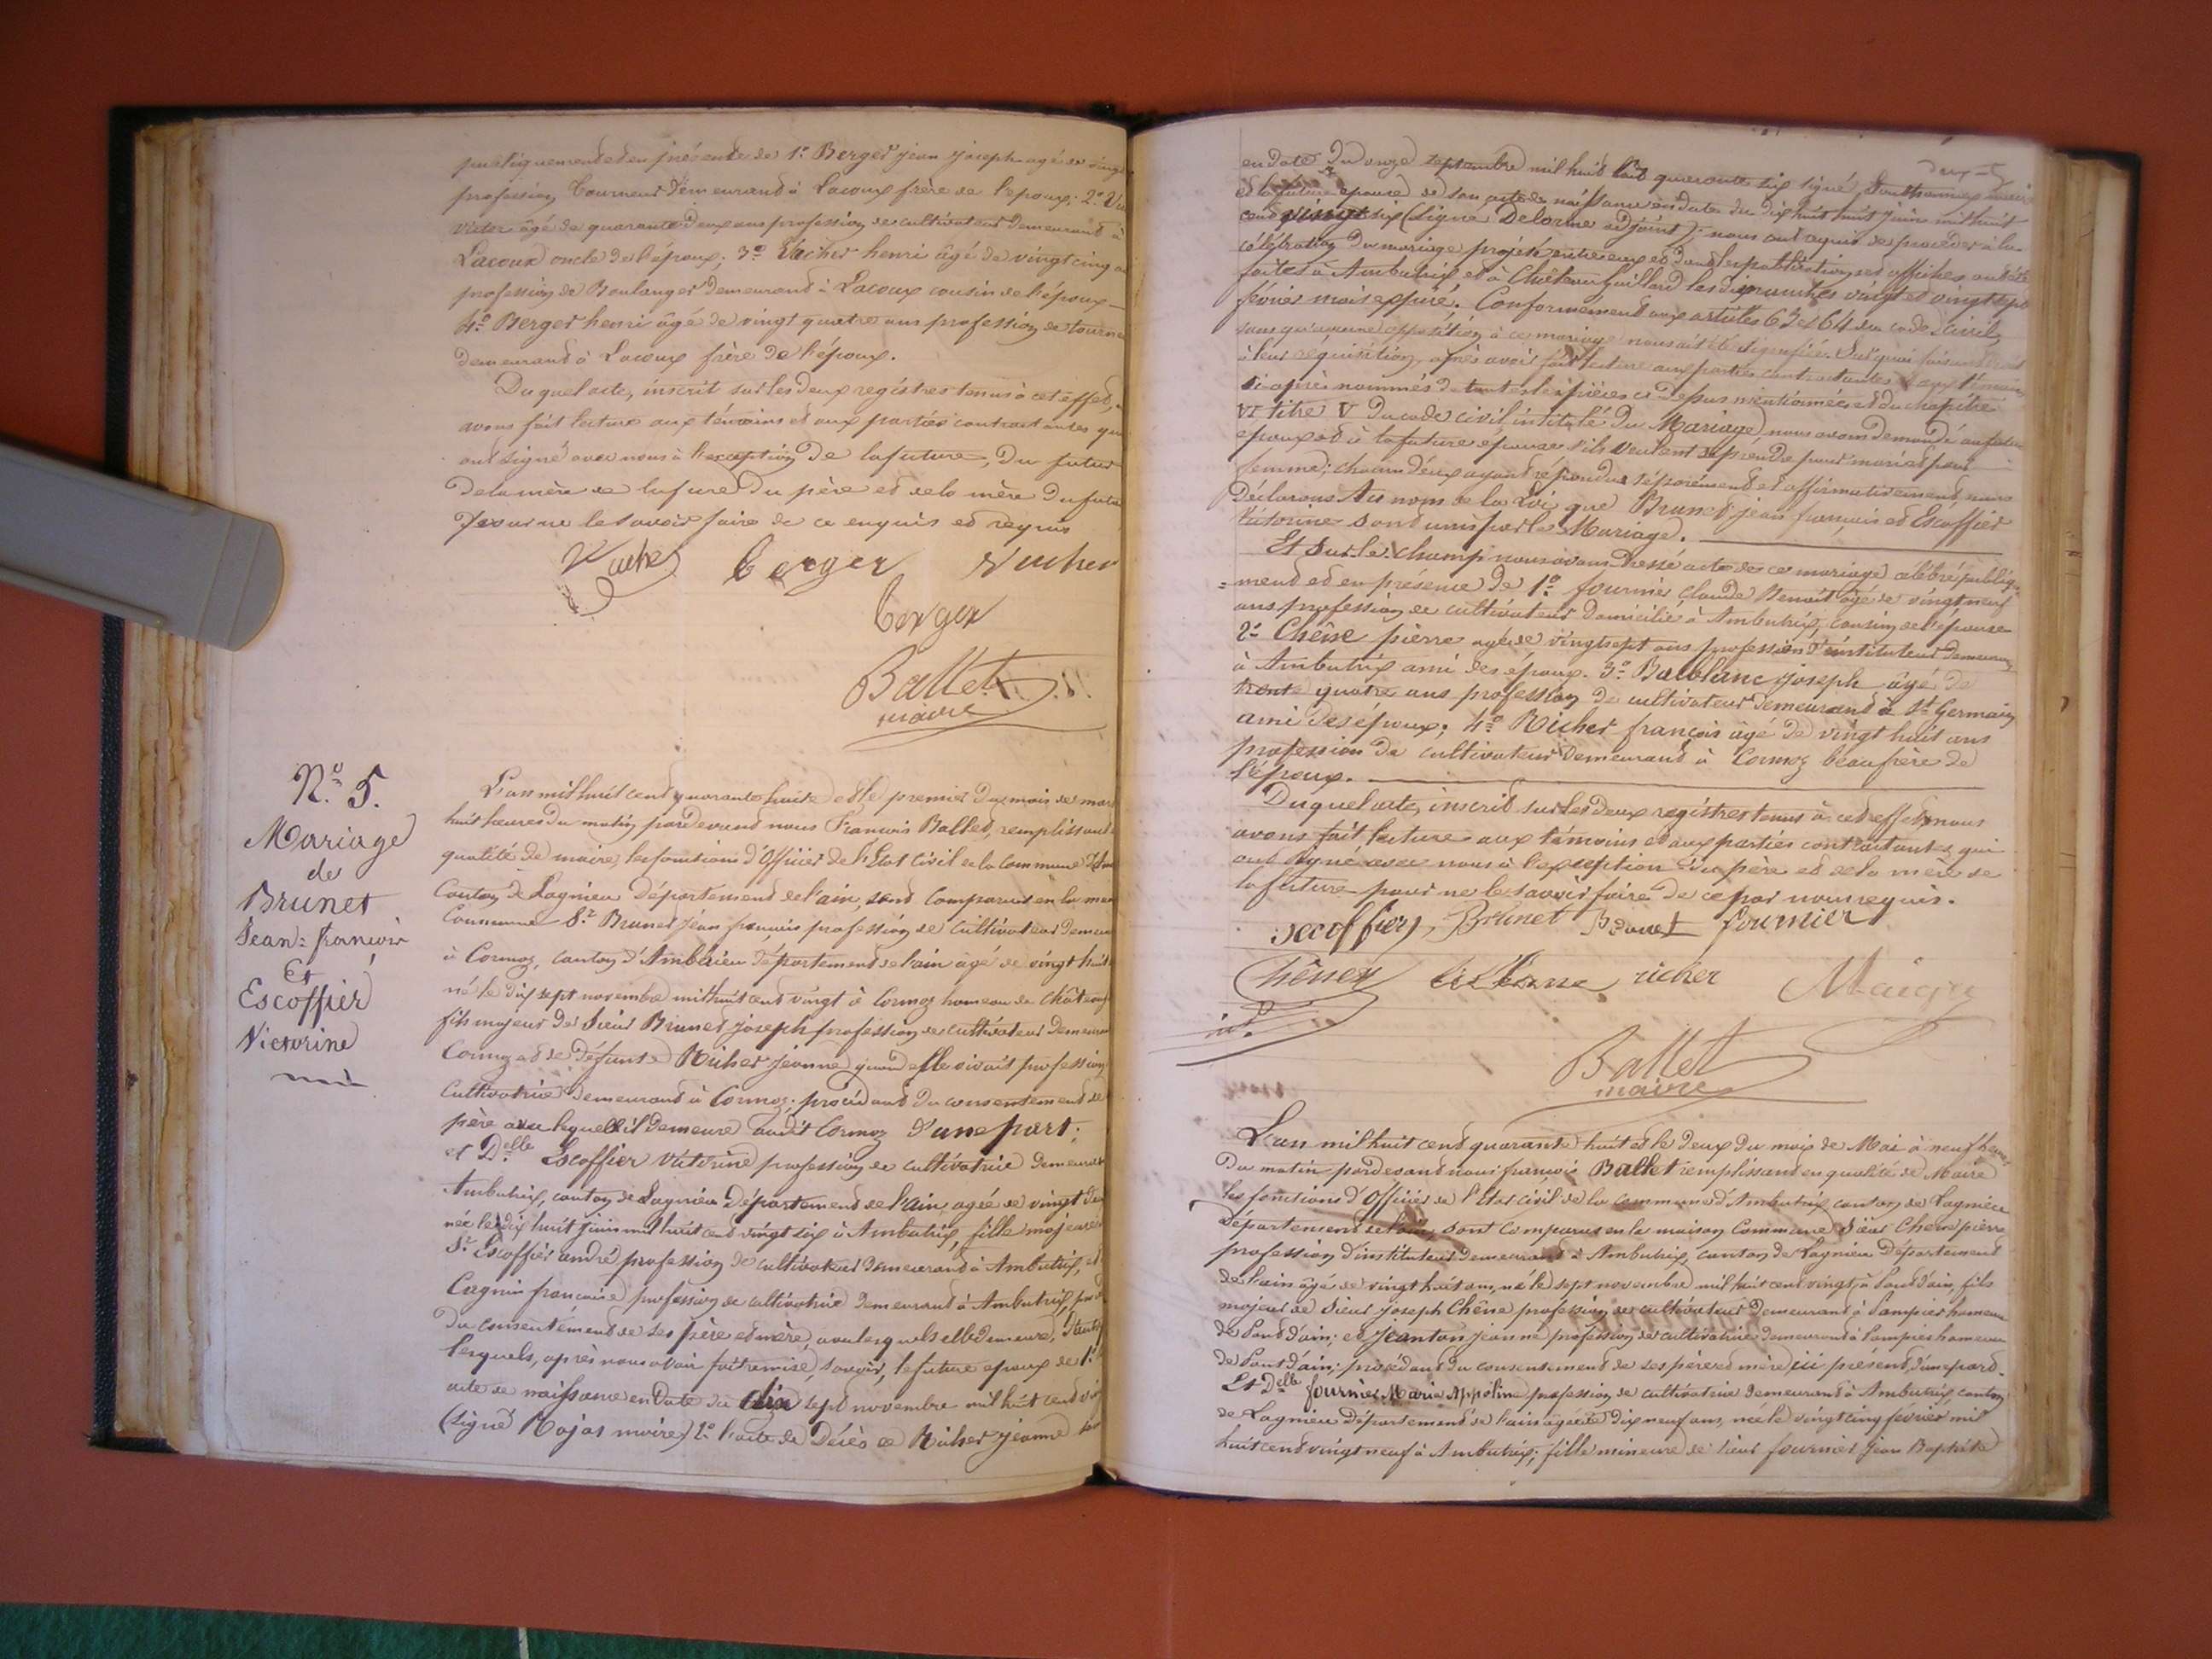 publiquement et en présence de 1º Berger jean joseph agé de vingt
profession tourneur demeurand à Lacoux frère de l'epoux; 2º
victor âgé de quarante deux ans profession de cultivateur demeurand à
Lacoux oncle de l'époux; 3º Vacher henri âgé de vingt cinq
profession de Boulanger demeurand à Lacoux cousin de l'époux
4º Berger henri âgé de vingt quatre ans profession de tourne
demeurand à Lacoux frère de l'époux.
Duquel acte, inscrit sur les deux registres tenus à cet effet,
avons fait lecture aux témoins et aux parties contractantes qui
ont signé avec nous à l'exception de la future, du futur
de la mère de la future du père et de la mère du futur
pour ne le savoir faire de ce enquis et requis
Vacher Berger Vucher
Berger
Ballet
maire
Nº 5.
Mariage
de
Brunet
Jean=françois
Et
Escoffier
Victorine
L'an mil huit cent quarante huit et le premier du mois de mars
huit heures du matin pardevand nous François Ballet, remplissand
qualité de maire, les fonctions d'Officier de l'Etat Civil de la Commune
Canton de Lagnieu Département de l'ain, sont comparus en la
Commune Sr Brunet Jean françois profession de cultivateur
à Cormoz, canton d'Ambérieu département de l'ain âgé de vingt huit
né le dix sept novembre mil huit cent vingt à Cormoz hameau de Château
fils majeur de Sieur Brunet joseph profession de cultivateur demeurand
Cormoz et de défunte Richer Jeanne quand elle vivait profession
cultivatrice demeurand à Cormoz; procédant du consentement de
père avec lequel il demeure audit Cormoz d'une part;
et Delle Escoffier Victorine profession de cultivatrice demeurand
Ambutrix, canton de Lagnieu Département de l'ain agée de vingt
née le dix huit juin mil huit cent vingt six à Ambutrix, fille majeure
Sr Escoffier andré profession de cultivateur demeurand à Ambutrix, et
françoise profession de cultivatrice demeurand à Ambutrix
du consentement de ses père et mère, avec lesquels elle demeure, d'autre
lesquels, après nous avoir fait remise, savoir, le future epoux de 1º
acte de naissance en date du dix sept novembre mil huit cent
(signé Rojas maire) 2º l'acte de Décès de Richer jeanne
deux
en date du onze septembre mil huit cent quarante six signé, maire
et la future epouse de son acte de naissance en date du dix huit juin mil huit
cent vingt six (signé Delorme adjoint). nous ont requis de procéder à la
célébration du mariage projeté entre eux et dont les publications et affiches ont été
faites à Ambutrix et à Château-Gaillard les dimanches vingt et vingt sept
février mois expiré. Conformément aux articles 63 et 64 du code civil,
sans qu'aucune opposition à ce mariage nous ait été signifiée. Sur quoi faisant droit
à leur réquisition, après avoir fait lecture aux parties contractantes et aux témoins
ci-après nommés de toutes les pièces ci-dessus mentionnées et du chapitre
VI titre V du code civil intitulé Du Mariage, nous avons demandé au futur
epoux et à la future epouse s'ils veulent se prendre pour mari et pour
femme; chacun d'eux ayant repondu séparément et affirmativement nous
déclarons Au nom de la Loi, que Brunet jean françois et Escoffier
Victorine sont unis par le Mariage.
Et sur-le-champ nous avons dressé acte de ce mariage célébré publiq=
=ment et en présence de 1º fournier claude Benoit âgé de vingt neuf
ans profession de cultivateur domicilié à Ambutrix, cousin de l'epouse
2º Chêne pierre agé de vingt sept ans profession d'instituteur demeurand
à Ambutrix ami des époux. 3º Balblanc joseph âgé de
trente quatre ans profession de cultivateur demeurand à St Germain
ami des époux; 4º Richer françois âgé de vingt huit ans
profession de cultivateur demeurand à Cormoz beaufrère de
l'époux.
Duquel acte, inscrit sur les deux registres tenus à cet effet nous
avons fait lecture aux témoins et aux parties contractantes, qui
ont signé avec nous à l'exception du père et de la mère de
la future pour ne le savoir faire de ce par nous requis.
escoffier, Brunet Brunet fournier
Chêne richer
Ballet
maire
L'an mil huit cent quarante huit et le deux du mois de Mai à neuf heures
du matin pardevand nous françois Ballet remplissand en qualité de Maire
les fonctions d'Officier de l'Etat civil de la commune d'Ambutrix canton de Lagnieu
Département de l'ain, sont comparus en la maison Commune Sieur Chêne pierre
profession d'instituteur demeurand à Ambutrix, canton de Lagnieu Département
de l'ain âgé de vingt huit ans, né le sept novembre mil huit cent vingt à Pont d'ain, fils
majeur de Sieur joseph Chêne profession de cultivateur demeurand à Pampier hameau
de Pont d'ain; et Jeanton jeanne profession de cultivatrice demeurand à Pampier hameau
de Pont d'ain; procédant du consentement de ses père et mère ici présent, d'une part.
Et Delle fournier Marie Appoline profession de cultivatrice demeurand à Ambutrix, canton
de Lagnieu Département de l'ain agée de dix neuf ans, née le vingt cinq février mil
huit cent vingt neuf à Ambutrix; fille mineure de sieur fournier Jean Baptiste